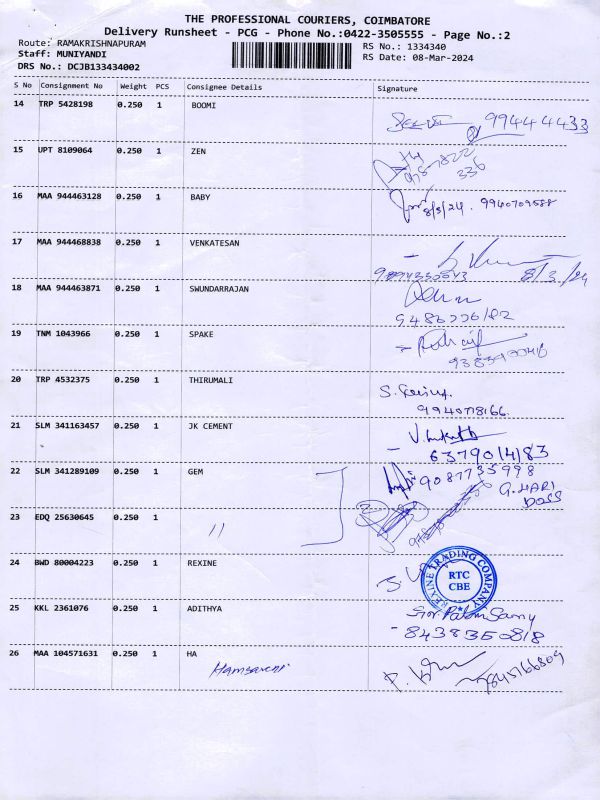 THE PROFESSIONAL COURIERS, COIMBATORE
Delivery Runsheet - PCG - Phone No.:0422-3505555 - Page No.:2
Route: RAMAKRISHNAPURAM
Staff: MUNIYANDI
DRS No.: DCJB133434002
RS No.: 1334340
RS Date: 08-Mar-2024
S No Consignment No Weight PCS Consignee Details Signature
14 TRP 5428198 0.250 1 BOOMI
9944444433
15 UPT 8109064 0.250 1 ZEN
336
16 MAA 944463128 0.250 1 BABY
8/3/24. 9940709588
17 MAA 944468838 0.250 1 VENKATESAN
8/3/24
18 MAA 944463871 0.250 1 SWUNDARRAJAN
19 TNM 1043966 0.250 1 SPAKE
20 TRP 4532375 0.250 1 THIRUMALI
9940718166.
21 SLM 341163457 0.250 1 JK CEMENT
6379014183
22 SLM 341289109 0.250 1 GEM
9087735998
G. HARI
DOSS
23 EDQ 25630645 0.250 1
"
24 BWD 80004223 0.250 1 REXINE
REXINE TRADING COMPANY
RTC
CBE
25 KKL 2361076 0.250 1 ADITHYA
8438350818
26 MAA 104571631 0.250 1 HA
9845166809